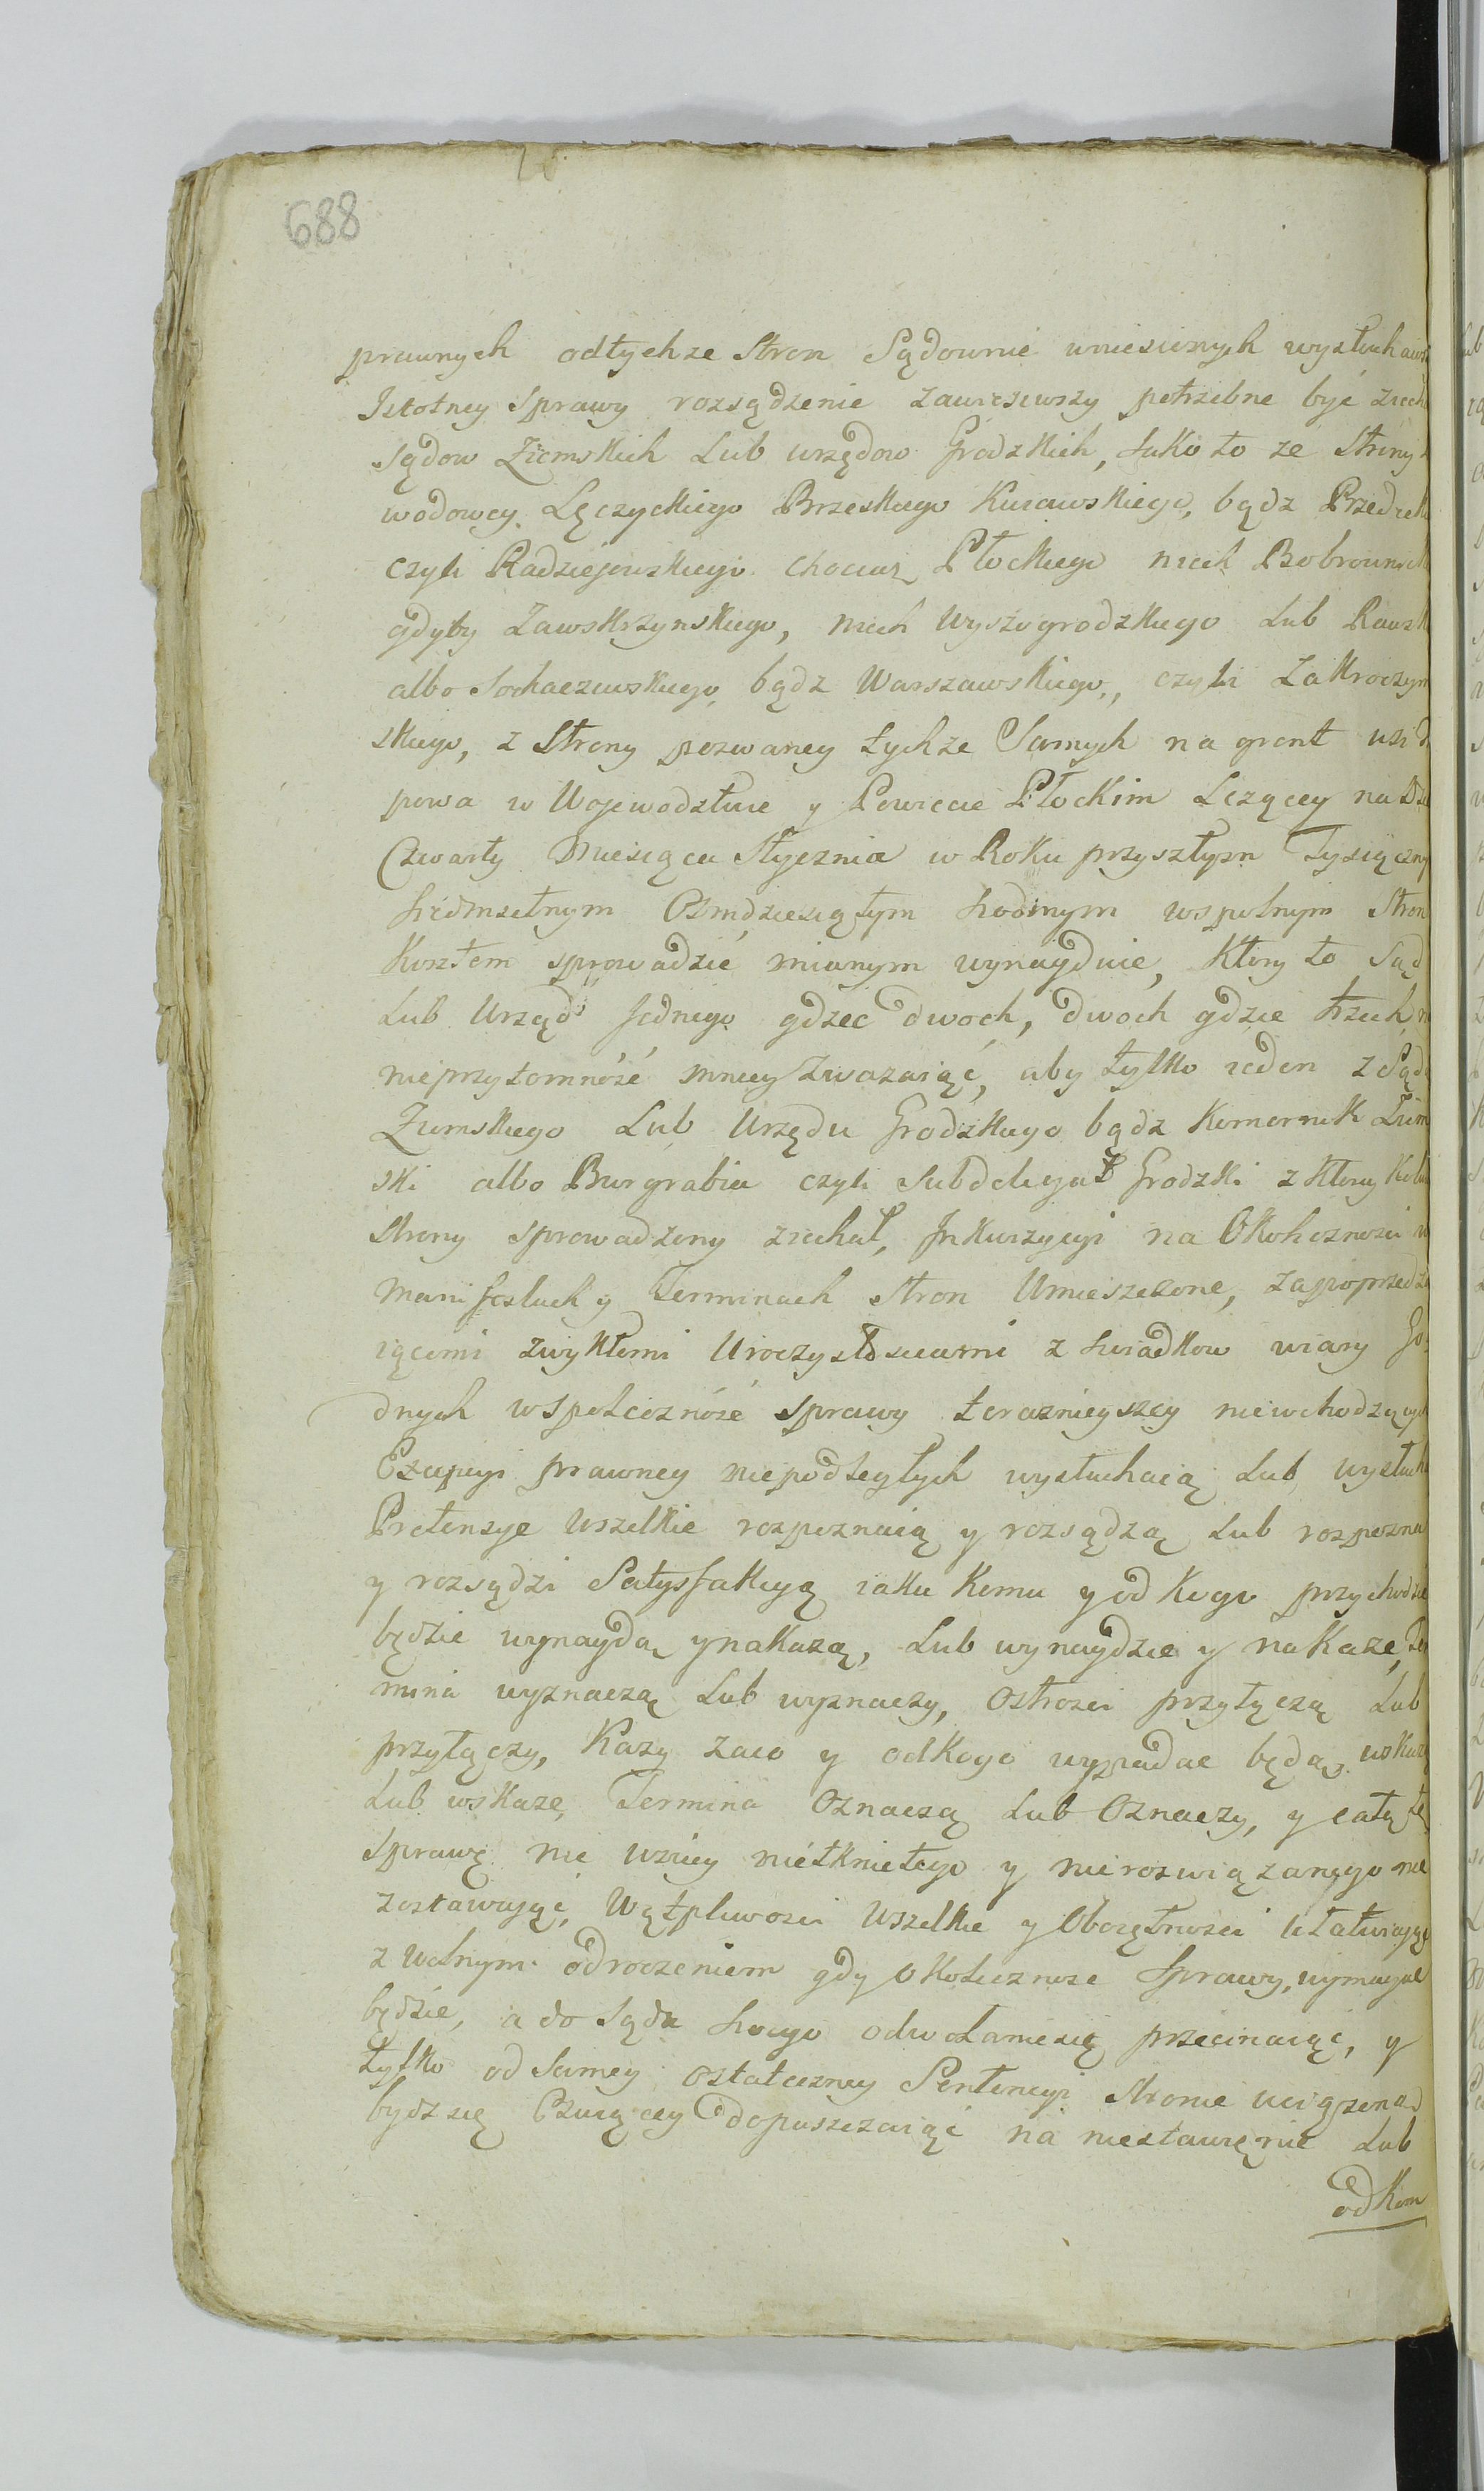 688
prawnych odtychze Stron Sądownie wniesionych wysłuchaws
Istotney Sprawy rozsądzenie zawiesiwszy potrzebne być ziech
Sądow Ziemskich Lub urzędow Grodzkich, Jako to ze Strony
wodowey Lęczyckiego Brzeskiego Kuiawskiego, bądz Przedeck
czyli Radziejowskiego chociasz Płockiego niech Bobrownick
gdyby Zawskrzynskiego, niech Wyszogrodzkiego Lub Rawsk
albo Sochaczewskiego, bądz Warszawskiego, czyli Zakroczym
skiego, z Strony pozwaney tychze Samych na gront
powa w Wojewodztwie y Powiecie Płockim Leżącey na Dzie
Czwarty Miesiąca Stycznia w Roku przyszłym Tysiączny
Siedmsetnym Osmdziesiątym Siodmym wspolnym Stron
Kosztem sprowadzić mianym wynaydzie, Ktory to Sąd
Lub Urząd Jednego gdzie dwoch, dwoch gdzie trzech
nieprzytomność mniey zwazaiąć, aby tylko ieden z Sądu
Ziemskiego Lub Urzędu Grodzkiego bądz Komornik Ziem
ski albo Burgrabia czyli Subdelegat Grodzki z Ktory Kol
Strony sprowadzony ziechał, Inkwizycyi na Okoliczności
Manifestach y Terminach Stron Umieszczone, zapoprzedza
iącemi zwykłemi Uroczystosciami z Swiadkow wiary Go
dnych wspołeczność Sprawy terazniejszey niewchodzących
Excepcyi prawney niepodległych wysłuchaią Lub wysłucha
Pretensye wszelkie rozpoznaią y rozsądzą Lub rozpozna
y rozsądzi Satysfakcyą iaka Komu y od Kogo przychodzic
będzie wynaydą ynakażą, Lub wynaydzie y nakaze, Ter
mina wyznaczą Lub wyznaczy, Ostrosci przyłączą Lub
przyłączy, Kazy zaco y odKogo wypadac będą, wskażą
Lub wskaze, Termina Oznaczą Lub Oznaczy, y całą tę
Sprawę nic wniey nietknietego y nierozwiązanego nie
zostawując, Wątpliwosci wszelkie y Oboiętności Ułatwiając
z wolnym odroczeniem gdy Okoliczność Sprawy, wymagac
będzie, a do Sądu Swego odwołaniesię przecinaiąć, y
tylko od Samey ostateczney Sentencyi Stronie uciązoną
bydzsię Czuiącey dopuszczaiąć na niestawienie Lub
odKom